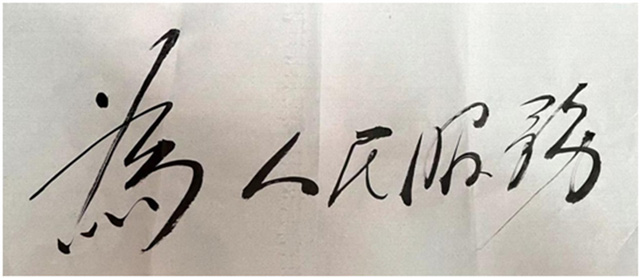 為人民服務